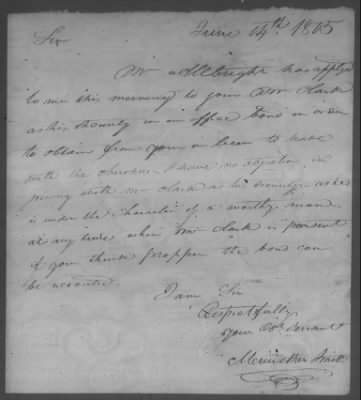 June 14th 1805
Sir
Mr Allbright has applyd
to me this morning to joine Mr Clark
as his security in an office bond in order
to obtain from you a licen to trade
with the cherokees. I have no objection in
joining with Mr Clark as his security who
is under the Character of a worthy man
at any time when Mr Clark is present
if you think propper the bond can
be executed
I am Sir
Respectfully
your Obt Servant
Smith